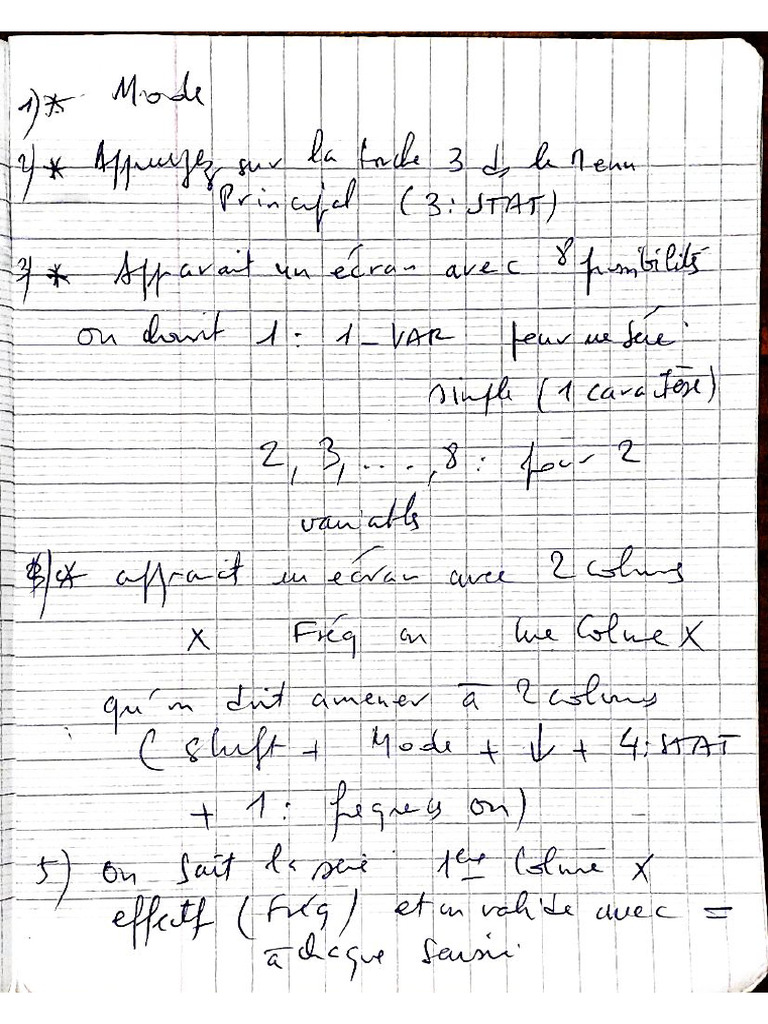 1)* Mode
2)* Appuyez sur la touche 3 ds le Menu
Principal (3: STAT)
3)* Apparait un écran avec 8 possibilités
on choisit 1: 1-VAR pour une série
simple (1 caractère)
2, 3, ..., 8: pour 2
variables
* apparait un écran avec 2 colonnes
X Fréq ou une Colonne X
qu'on doit amener à 2 colonnes
(shift + Mode + ↓ + 4: STAT
+ 1: frequences on)
5) on saisit la série 1ère Colonne X
effectif (Fréq) et on valide avec =
à chaque saisie